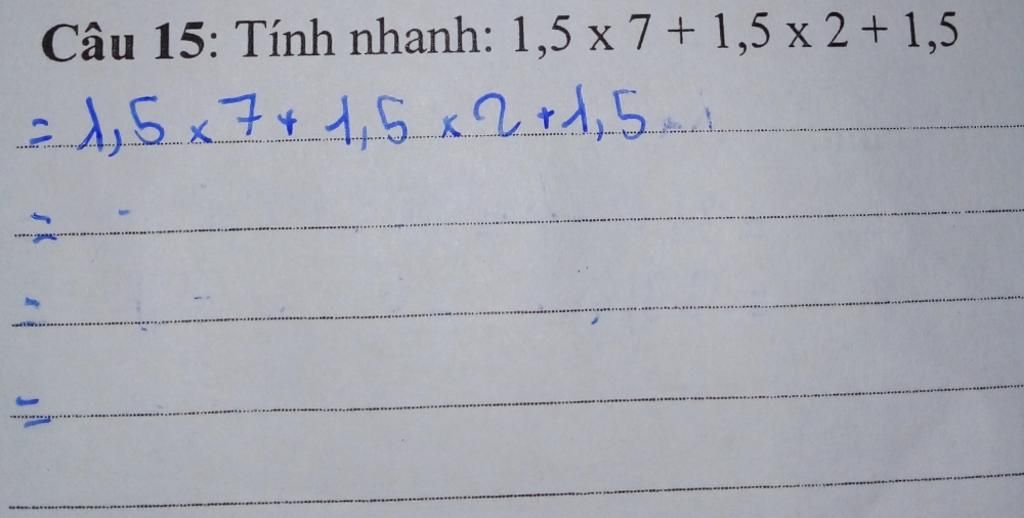 Câu 15: Tính nhanh: 1,5 x 7 + 1,5 x 2 + 1,5
= 1,5 x 7 + 1,5 x 2 + 1,5
=
=
=